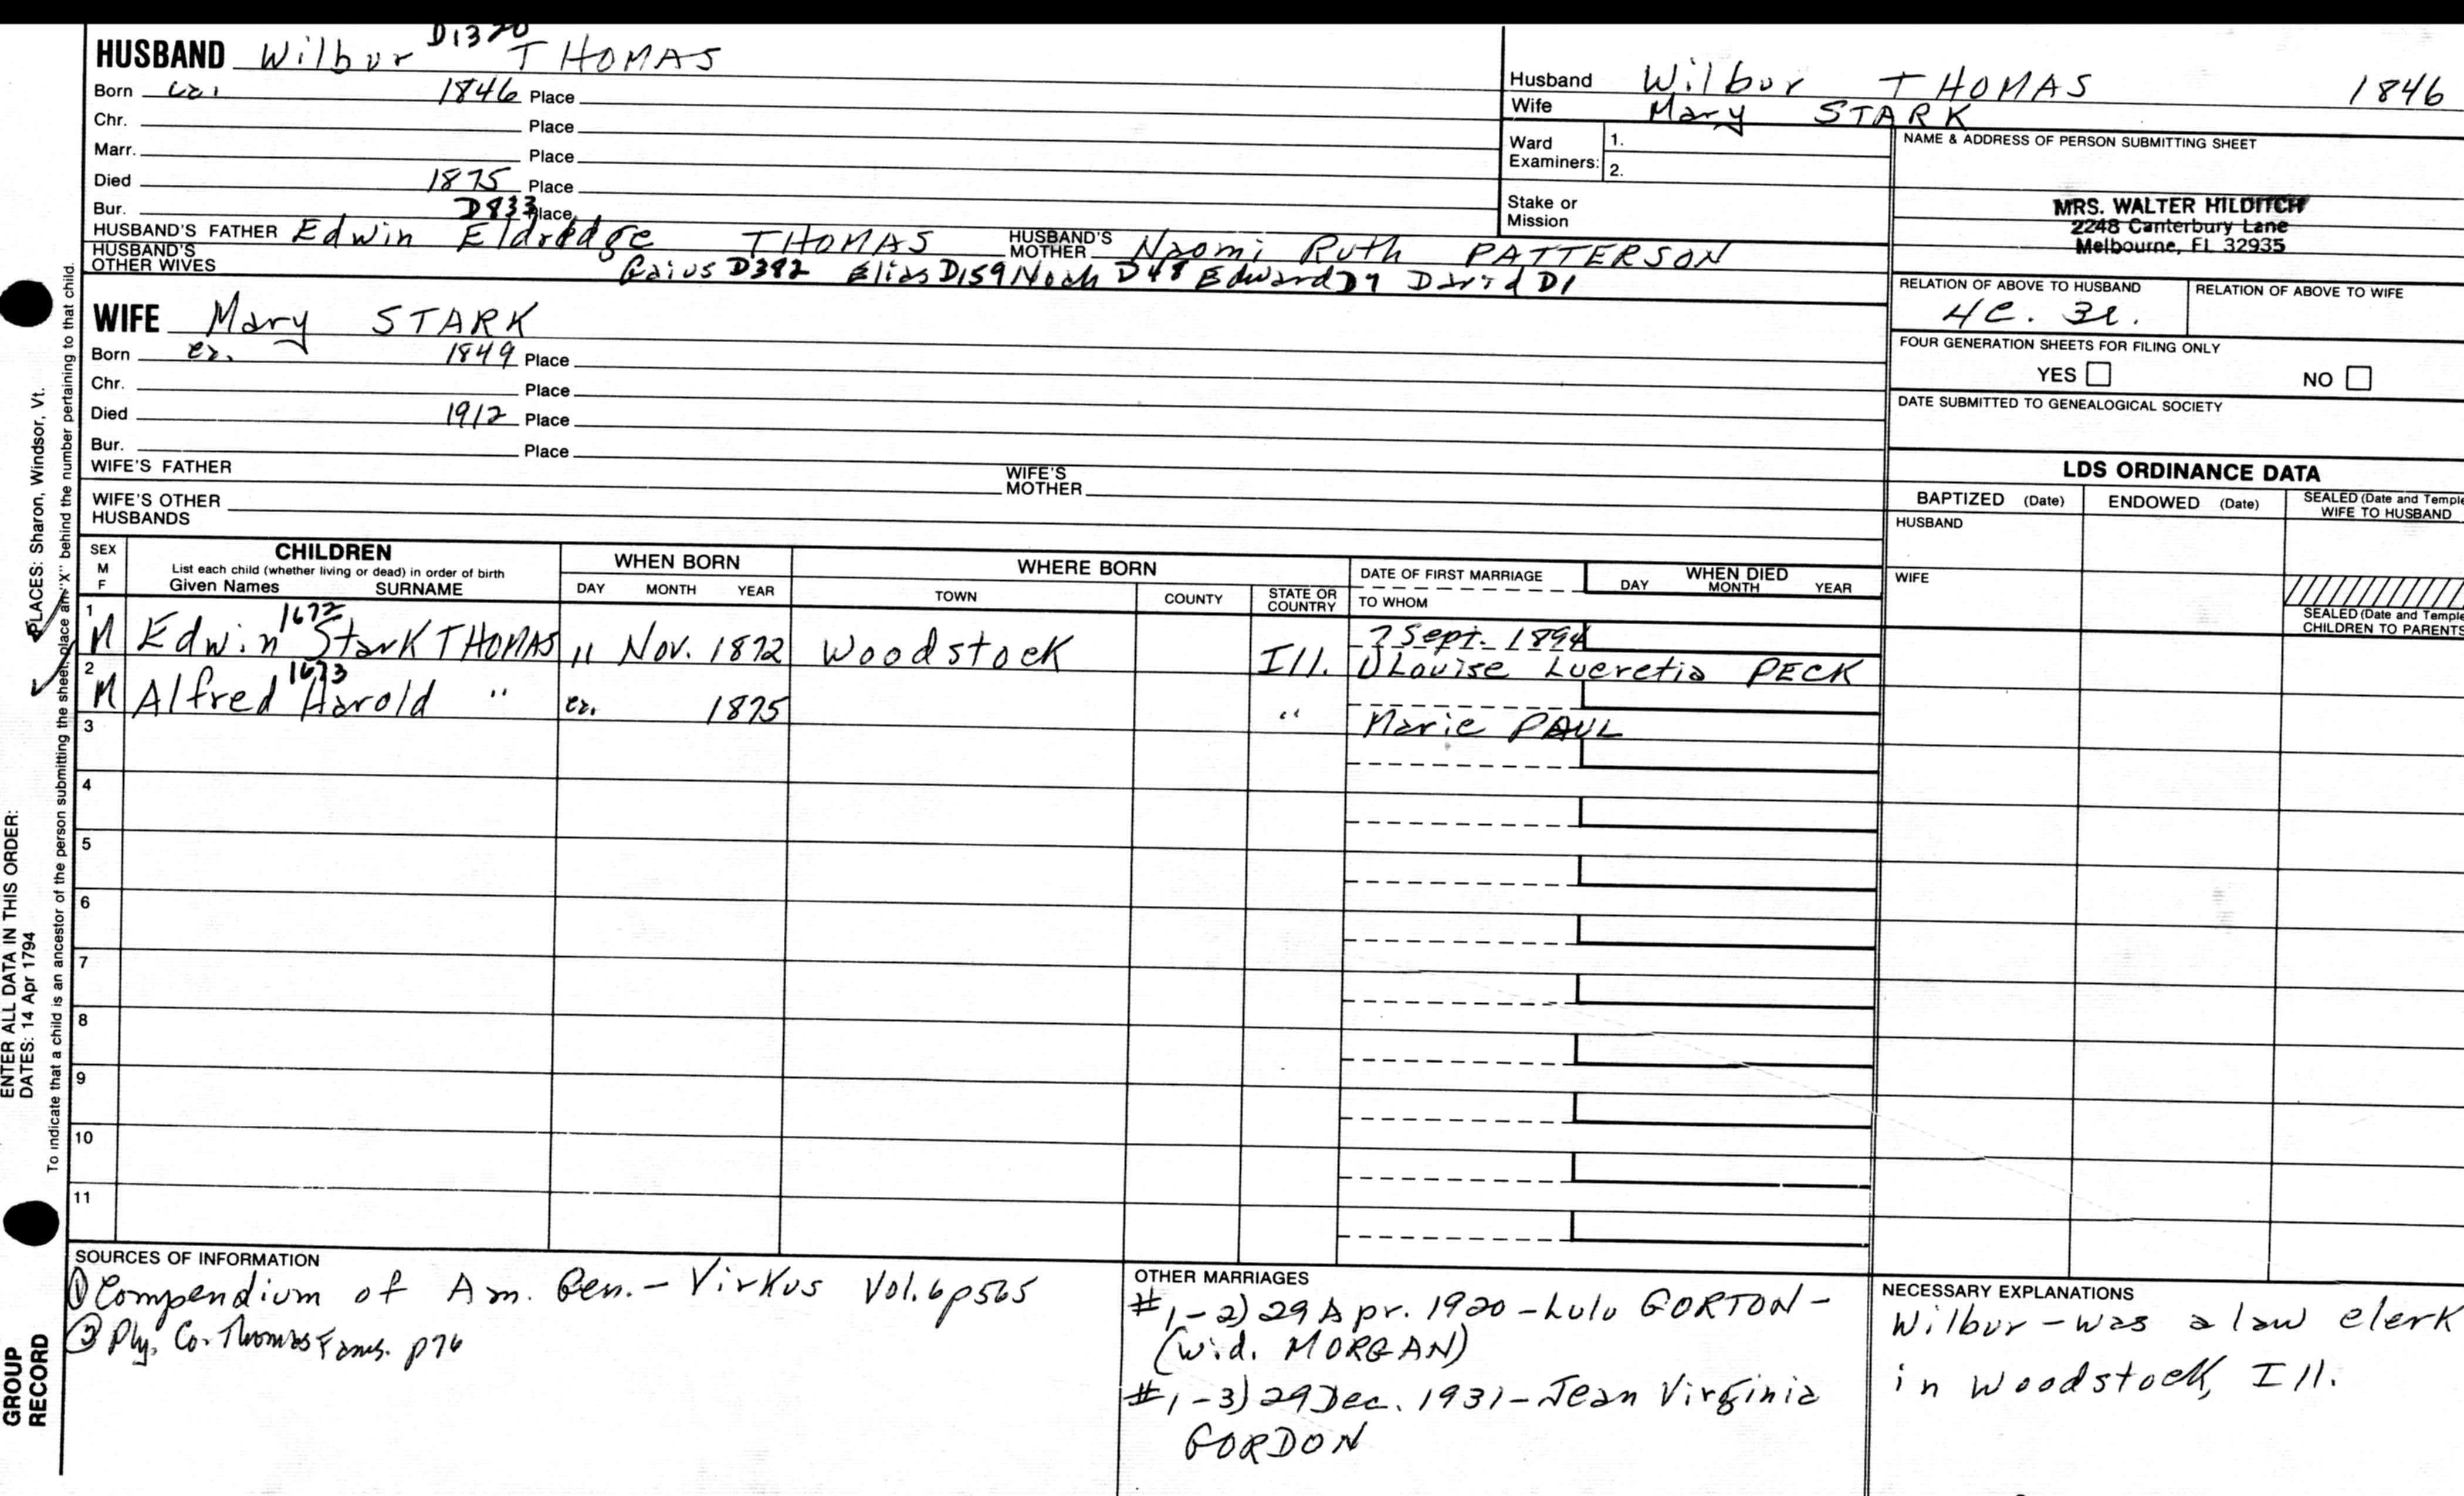 D1320
HUSBAND Wilbur THOMAS
Born ca. 1846 Place
Chr. Place
Marr. Place
Died 1875 Place
Bur. D833 Place
HUSBAND'S FATHER Edwin Eldredge THOMAS HUSBAND'S MOTHER Naomi Ruth PATTERSON
HUSBAND'S OTHER WIVES Gaius D382 Elias D159 Noah D48 Edward D9 David D1
WIFE Mary STARK
Born ca. 1849 Place
Chr. Place
Died 1912 Place
Bur. Place
WIFE'S FATHER WIFE'S MOTHER
WIFE'S OTHER HUSBANDS
Husband Wilbur THOMAS 1846
Wife Mary STARK
Ward Examiners: 1.
2.
Stake or Mission
NAME & ADDRESS OF PERSON SUBMITTING SHEET
MRS. WALTER HILDITCH
2248 Canterbury Lane
Melbourne, FL 32935
RELATION OF ABOVE TO HUSBAND RELATION OF ABOVE TO WIFE
4C. 3r.
FOUR GENERATION SHEETS FOR FILING ONLY
YES NO
DATE SUBMITTED TO GENEALOGICAL SOCIETY
LDS ORDINANCE DATA
BAPTIZED (Date) ENDOWED (Date) SEALED (Date and Temple
WIFE TO HUSBAND
HUSBAND
WIFE
SEALED (Date and Temple
CHILDREN TO PARENTS
SEX M F CHILDREN WHEN BORN WHERE BORN DATE OF FIRST MARRIAGE WHEN DIED
List each child (whether living or dead) in order of birth
Given Names SURNAME DAY MONTH YEAR TOWN COUNTY STATE OR COUNTRY TO WHOM DAY MONTH YEAR
1 1672 7 Sept. 1894
M Edwin Stark THOMAS 11 Nov. 1872 Woodstock Ill. 1) Louise Lucretia PECK
2 1673
M Alfred Harold " ca. 1875 " Marie PAUL
3
4
5
6
7
8
9
10
11
SOURCES OF INFORMATION
① Compendium of Am. Gen. - Virkus Vol. 6 p565
② Ply. Co. Thomas Fams. p76
OTHER MARRIAGES
#1-2) 29 Apr. 1920 - Lulu GORTON -
(wid. MORGAN)
#1-3) 29 Dec. 1931 - Jean Virginia
GORDON
NECESSARY EXPLANATIONS
Wilbur - was a law clerk
in Woodstock, Ill.
ENTER ALL DATA IN THIS ORDER:
DATES: 14 Apr 1794
PLACES: Sharon, Windsor, Vt.
To indicate that a child is an ancestor of the person submitting the sheet, place an "X" behind the number pertaining to that child.
GROUP
RECORD